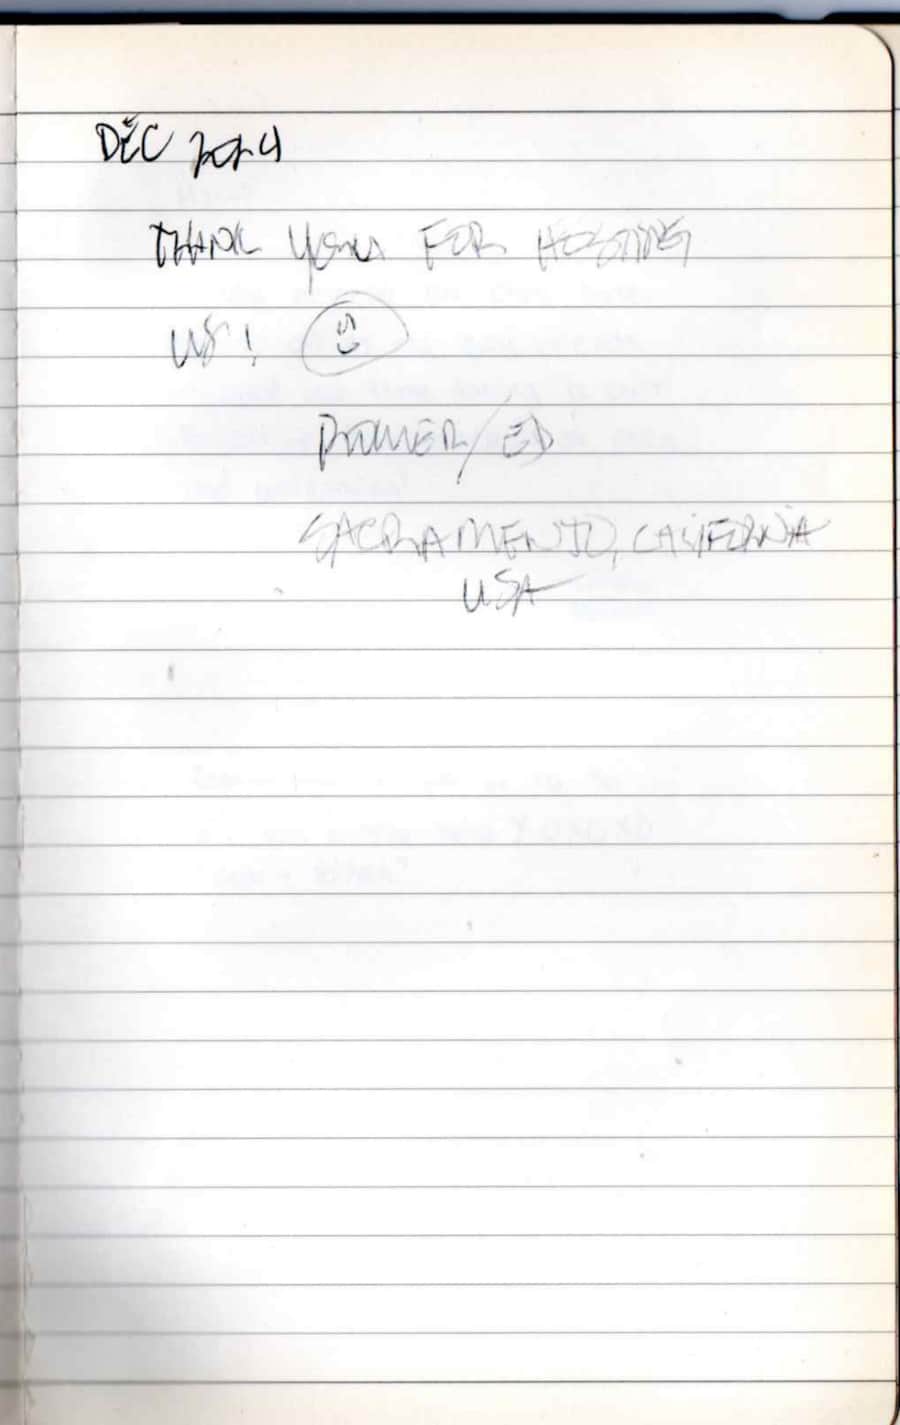 DEC 2024
THANK YOU FOR HOSTING
US!
/ED
SACRAMENTO, CALIFORNIA
USA